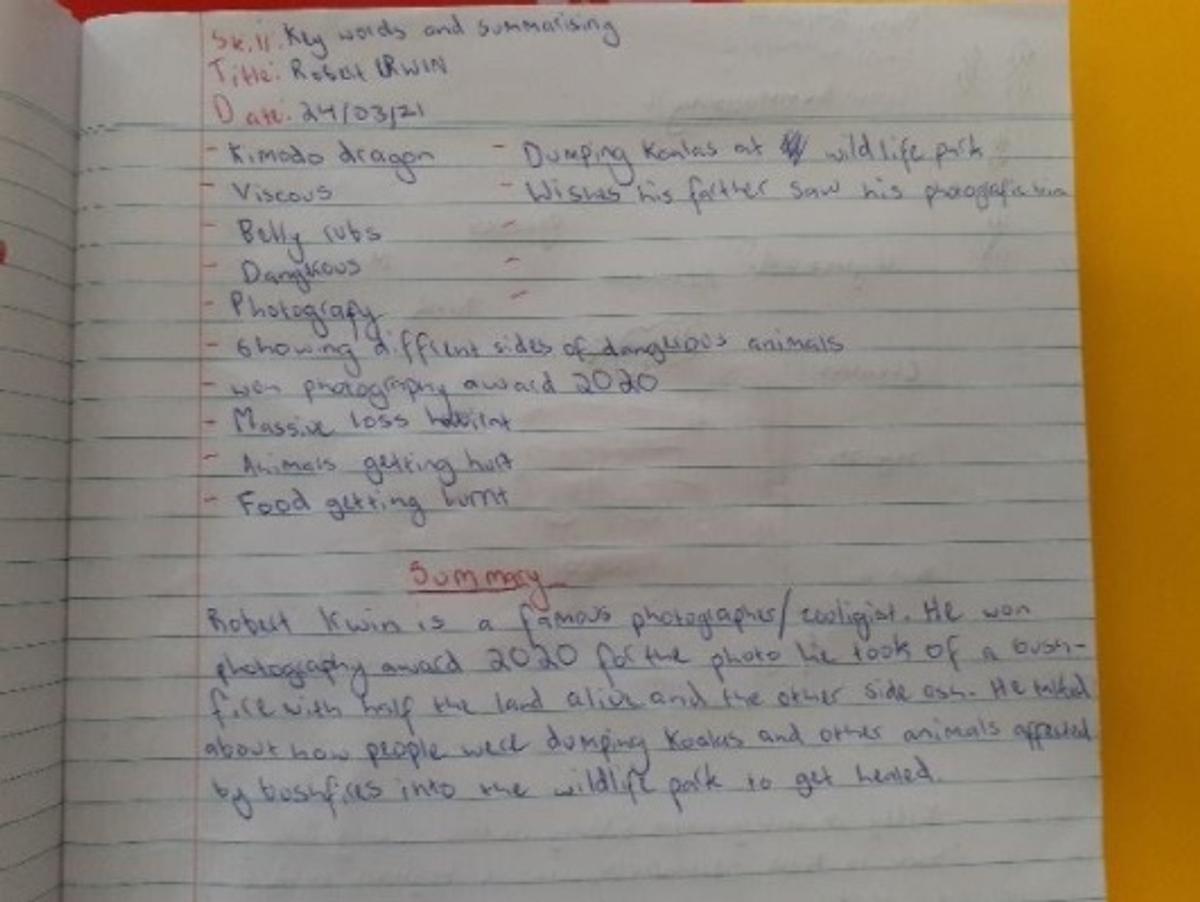 Skill: Key words and summarising
Title: Robert IRWIN
Date: 24/03/21
- Kimodo dragon
- Viscous
- Belly rubs
- Dangerous
- Photografy
- Showing diffrent sides of dangerous animals
- won photography award 2020
- Massive loss habitat
- Animals getting hurt
- Food getting burnt
- Dumping Koalas at wildlife park
- Wishes his farther saw his
-
-
-
Summary
Robert Irwin is a famous photographer/zooligist. He won
photography award 2020 for the photo he took of a bush-
fire with half the land alive and the other side ash. He talked
about how people were dumping Koalas and other animals affected
by bushfires into the wildlife park to get healed.